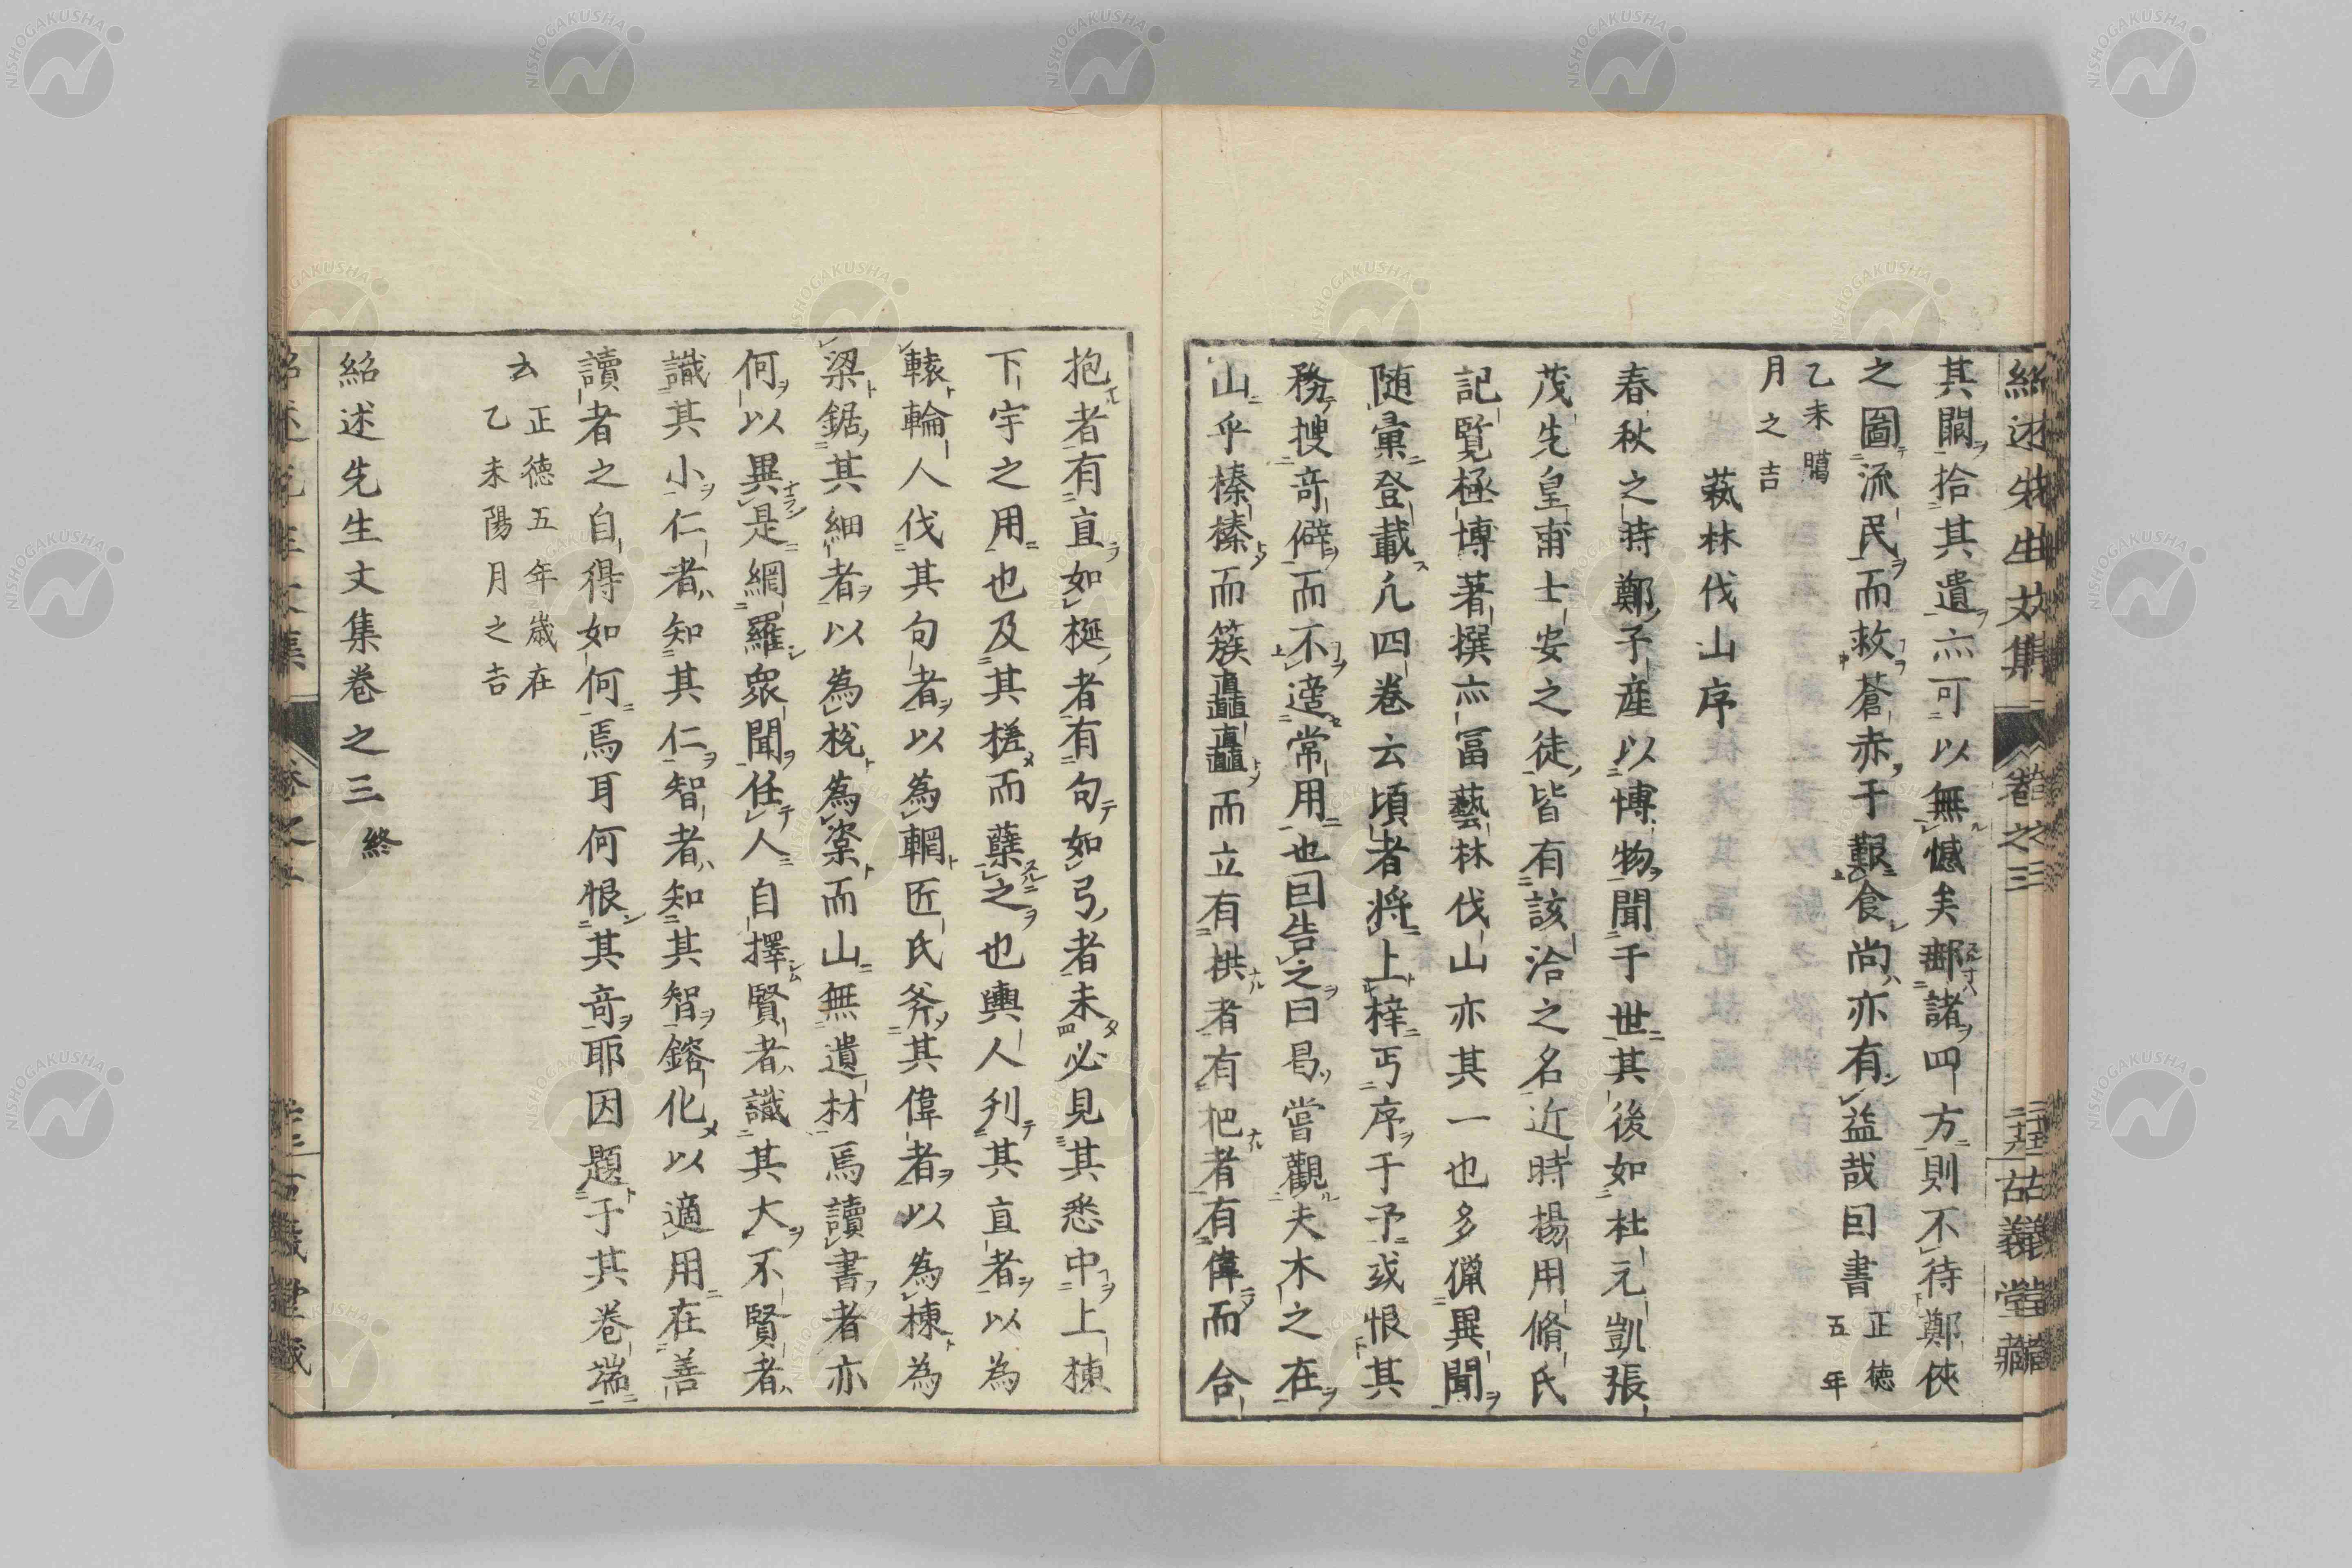 其闕拾其遺亦可以無憾矣郵諸四方則不待鄭俠
之圖流民而救蒼赤于艱食尚亦有益哉因書正德五年
乙未臈
月之吉
蓺林伐山序
春秋之時鄭子產以博物聞于世其後如杜元凱張
茂先皇甫士安之徒皆有該洽之名近時揚用脩氏
記覽極博著撰亦冨藝林伐山亦其一也多獵異聞
随彙登載凢四卷云頃者將上梓丐序于予或恨其
務搜奇僻而不適常用也因告之曰曷嘗觀夫木之在
山乎榛榛而簇矗矗而立有拱者有把者有偉而合
抱者有直如梃者有句如弓者未必見其悉中上棟
下宇之用也及其槎而蘖之也輿人利其直者以為
轅輪人伐其句者以為輞匠氏斧其偉者以為棟為
梁鋸其細者以為梲為楶而山無遺材焉讀書者亦
何以異是網羅衆聞任人自擇賢者識其大不賢者
識其小仁者知其仁智者知其智鎔化以適用在善
讀者之自得如何焉耳何恨其奇耶因題于其卷端
云
正德五年歳在
乙未陽月之吉
紹述先生文集卷之三 終
紹述先生文集 卷之三 古義堂藏
NISHOGAKUSHA